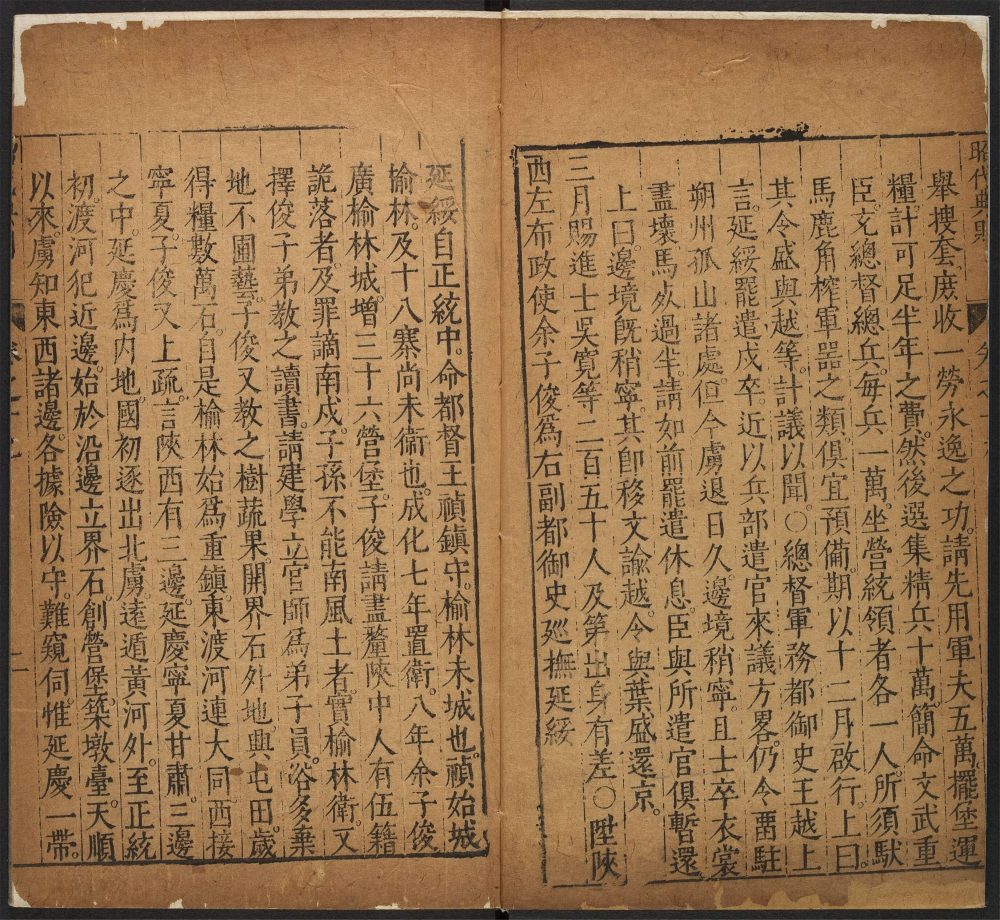 昭代典則
舉搜套庻收一勞永逸之功請先用軍夫五萬擺堡運
糧計可足半年之費然後選集精兵十萬簡命文武重
臣充總督總兵每兵一萬坐營統領者各一人所須馱
馬鹿角榨軍器之類俱宜預備期以十二月啟行上曰
其令盛與越等計議以聞○總督軍務都御史王越上
言延綏罷遣戍卒近以兵部遣官來議方畧仍令畱駐
朔州孤山諸處但今虜退日久邊境稍寧且士卒衣裳
盡壞馬死過半請如前罷遣休息臣與所遣官俱暫還
上曰邊境既稍寧其卽移文諭越令與葉盛還京
三月賜進士吳寬等二百五十人及第出身有差○陞陜
西左布政使余子俊爲右副都御史廵撫延綏
延綏自正統中命都督王禎鎮守榆林未城也禎始城
榆林及十八寨尚未衞也成化七年置衛八年余子俊
廣榆林城增三十六營堡子俊請盡釐陜中人有伍籍
詭落者及罪謫南戍子孫不能南風土者實榆林衛又
擇俊子弟教之讀書請建學立官師爲弟子員俗多棄
地不圃藝子俊又教之樹蔬果開界石外地興屯田歲
得糧數萬石自是榆林始爲重鎮東渡河連大同西接
寧夏子俊又上疏言陜西有三邊延慶寧夏甘肅三邊
之中延慶爲内地國初逐出北虜遠遁黃河外至正統
初渡河犯近邊始於沿邊立界石創營堡築墩臺天順
以來虜知東西諸邊各據險以守難窺伺惟延慶一帶